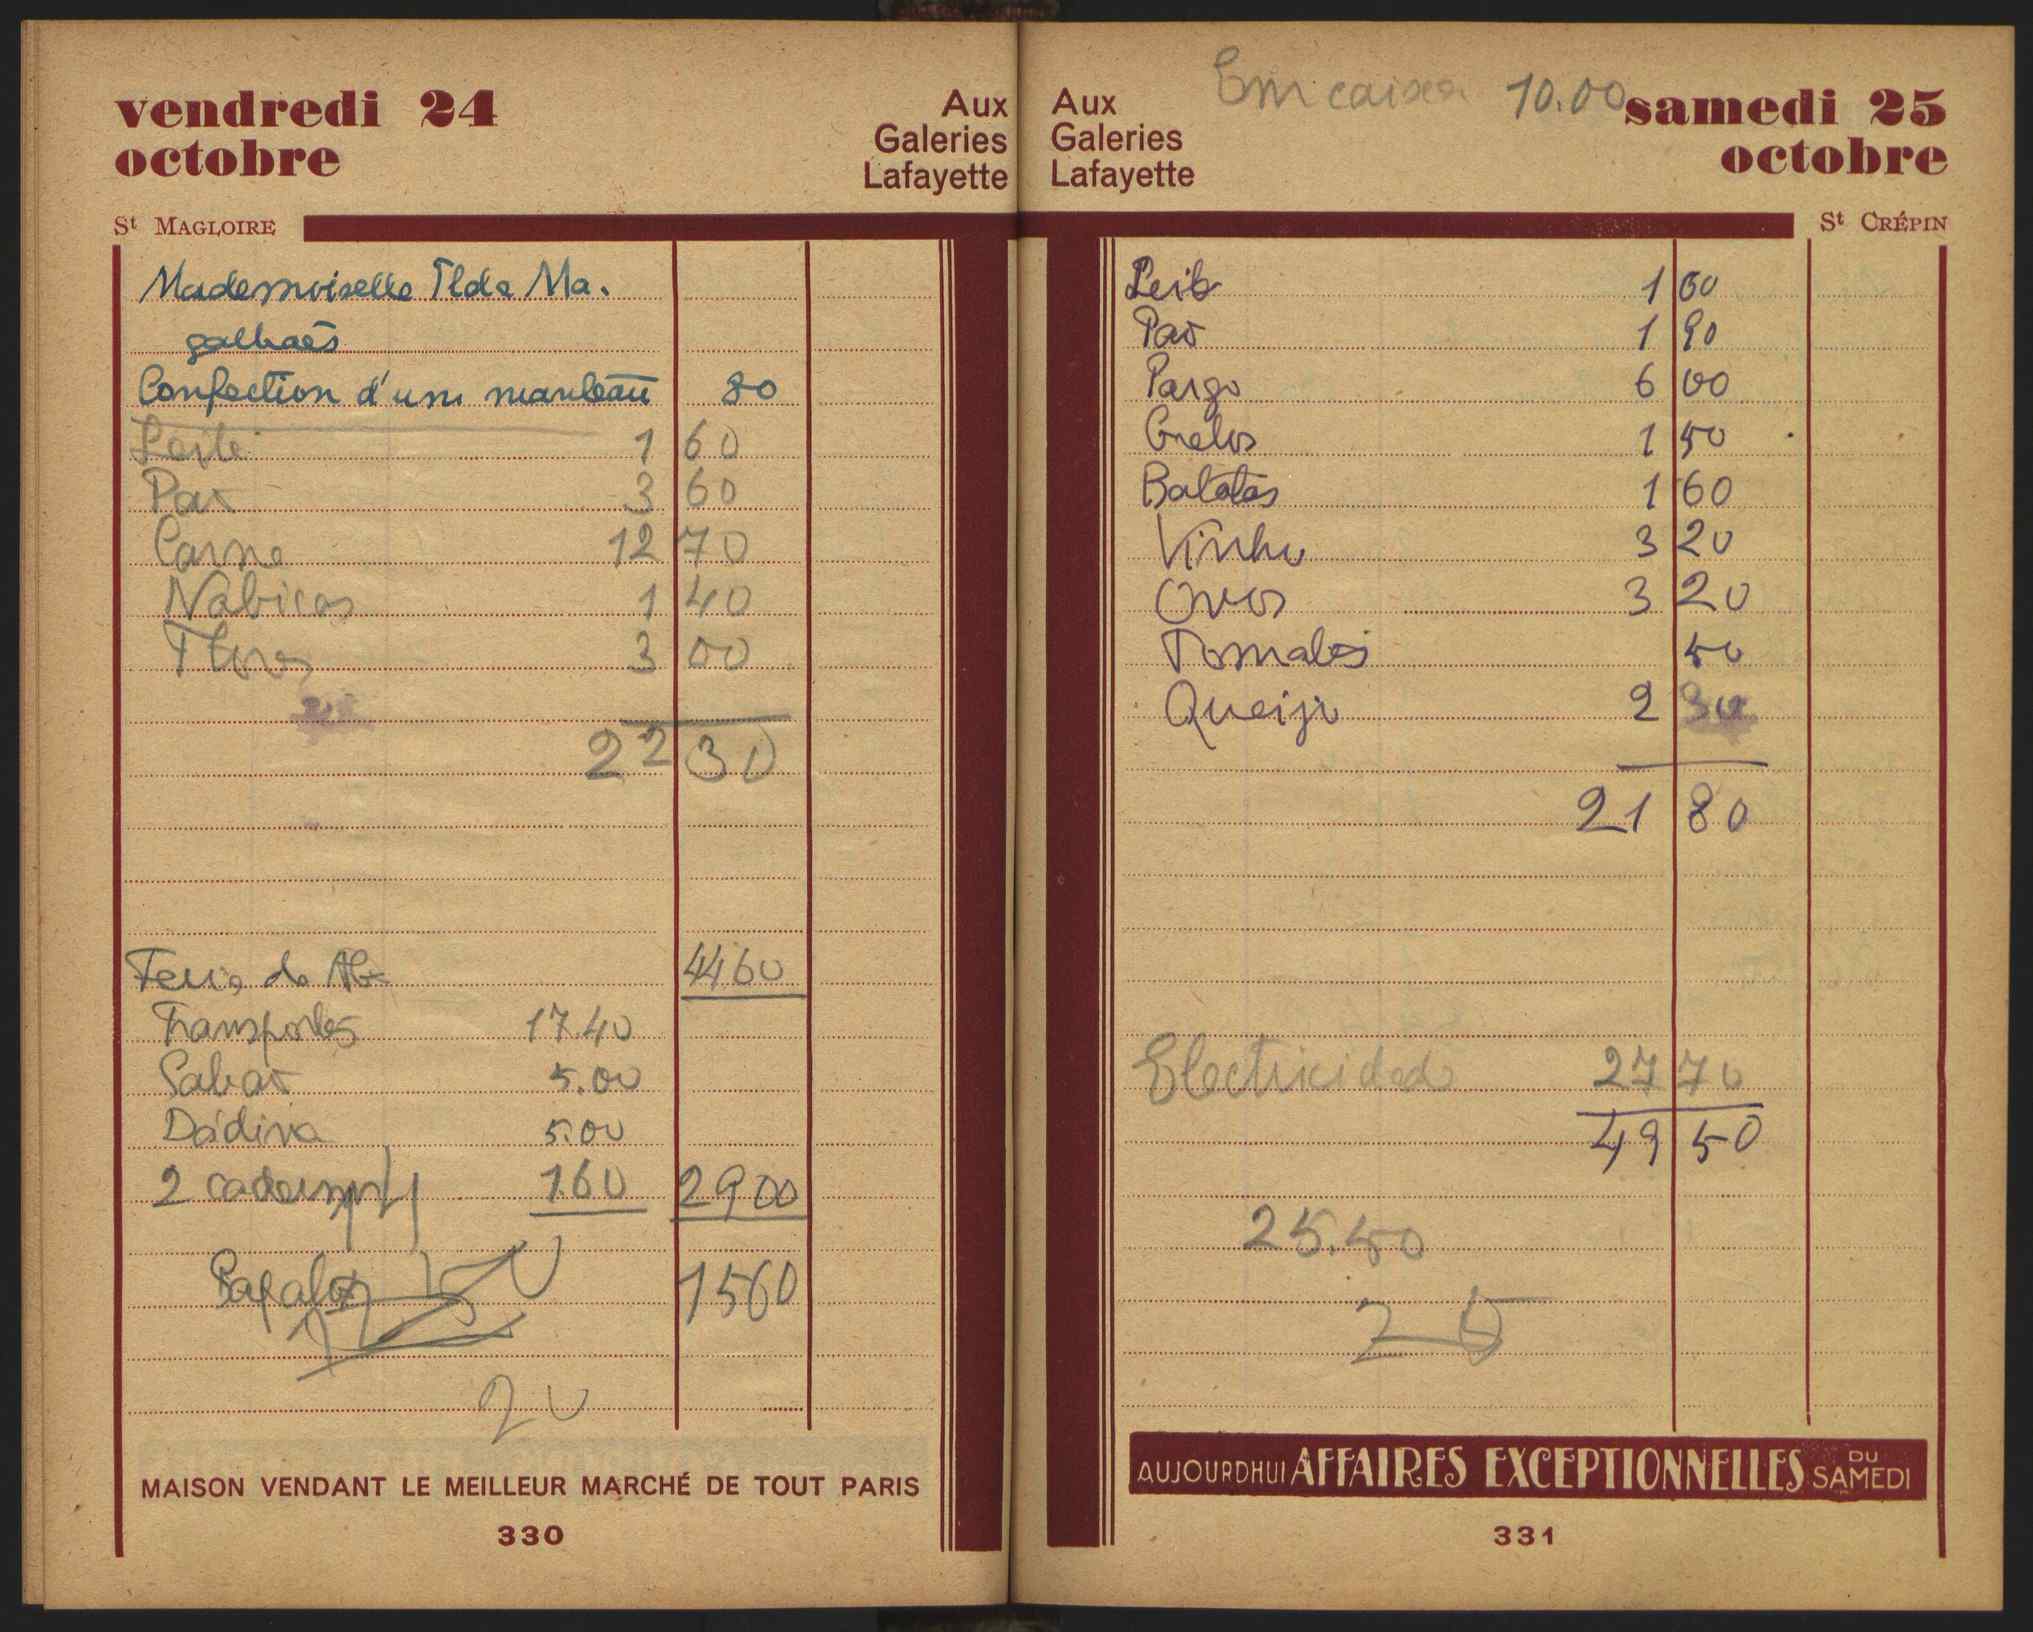 vendredi 24
octobre
Aux
Galeries
Lafayette
St MAGLOIRE
Mademoiselle Ilda Ma.
galhaês
Confection d'um manteau 80
Leite 1 60
Pao 3 60
Carne 12 70
Nabicas 1 40
Flores 3 00
22 30
Feria da 44 60
Transportes 17.40
Sabao 5.00
Dádiva 5.00
2 1.60 29 00
15 60
20
MAISON VENDANT LE MEILLEUR MARCHÉ DE TOUT PARIS
330
Em caixa 10.00
Aux
Galeries
Lafayette
samedi 25
octobre
St CRÉPIN
Leite 1 60
Pao 1 90
Pargo 6 00
Grelos 1 50
Batatas 1 60
Vinho 3 20
Ovos 3 20
Tomates 50
Queijo 2 30
21 80
Electricidade 27 70
49 50
25.50
25
AUJOURDHUI AFFAIRES EXCEPTIONNELLES DU SAMEDI
331